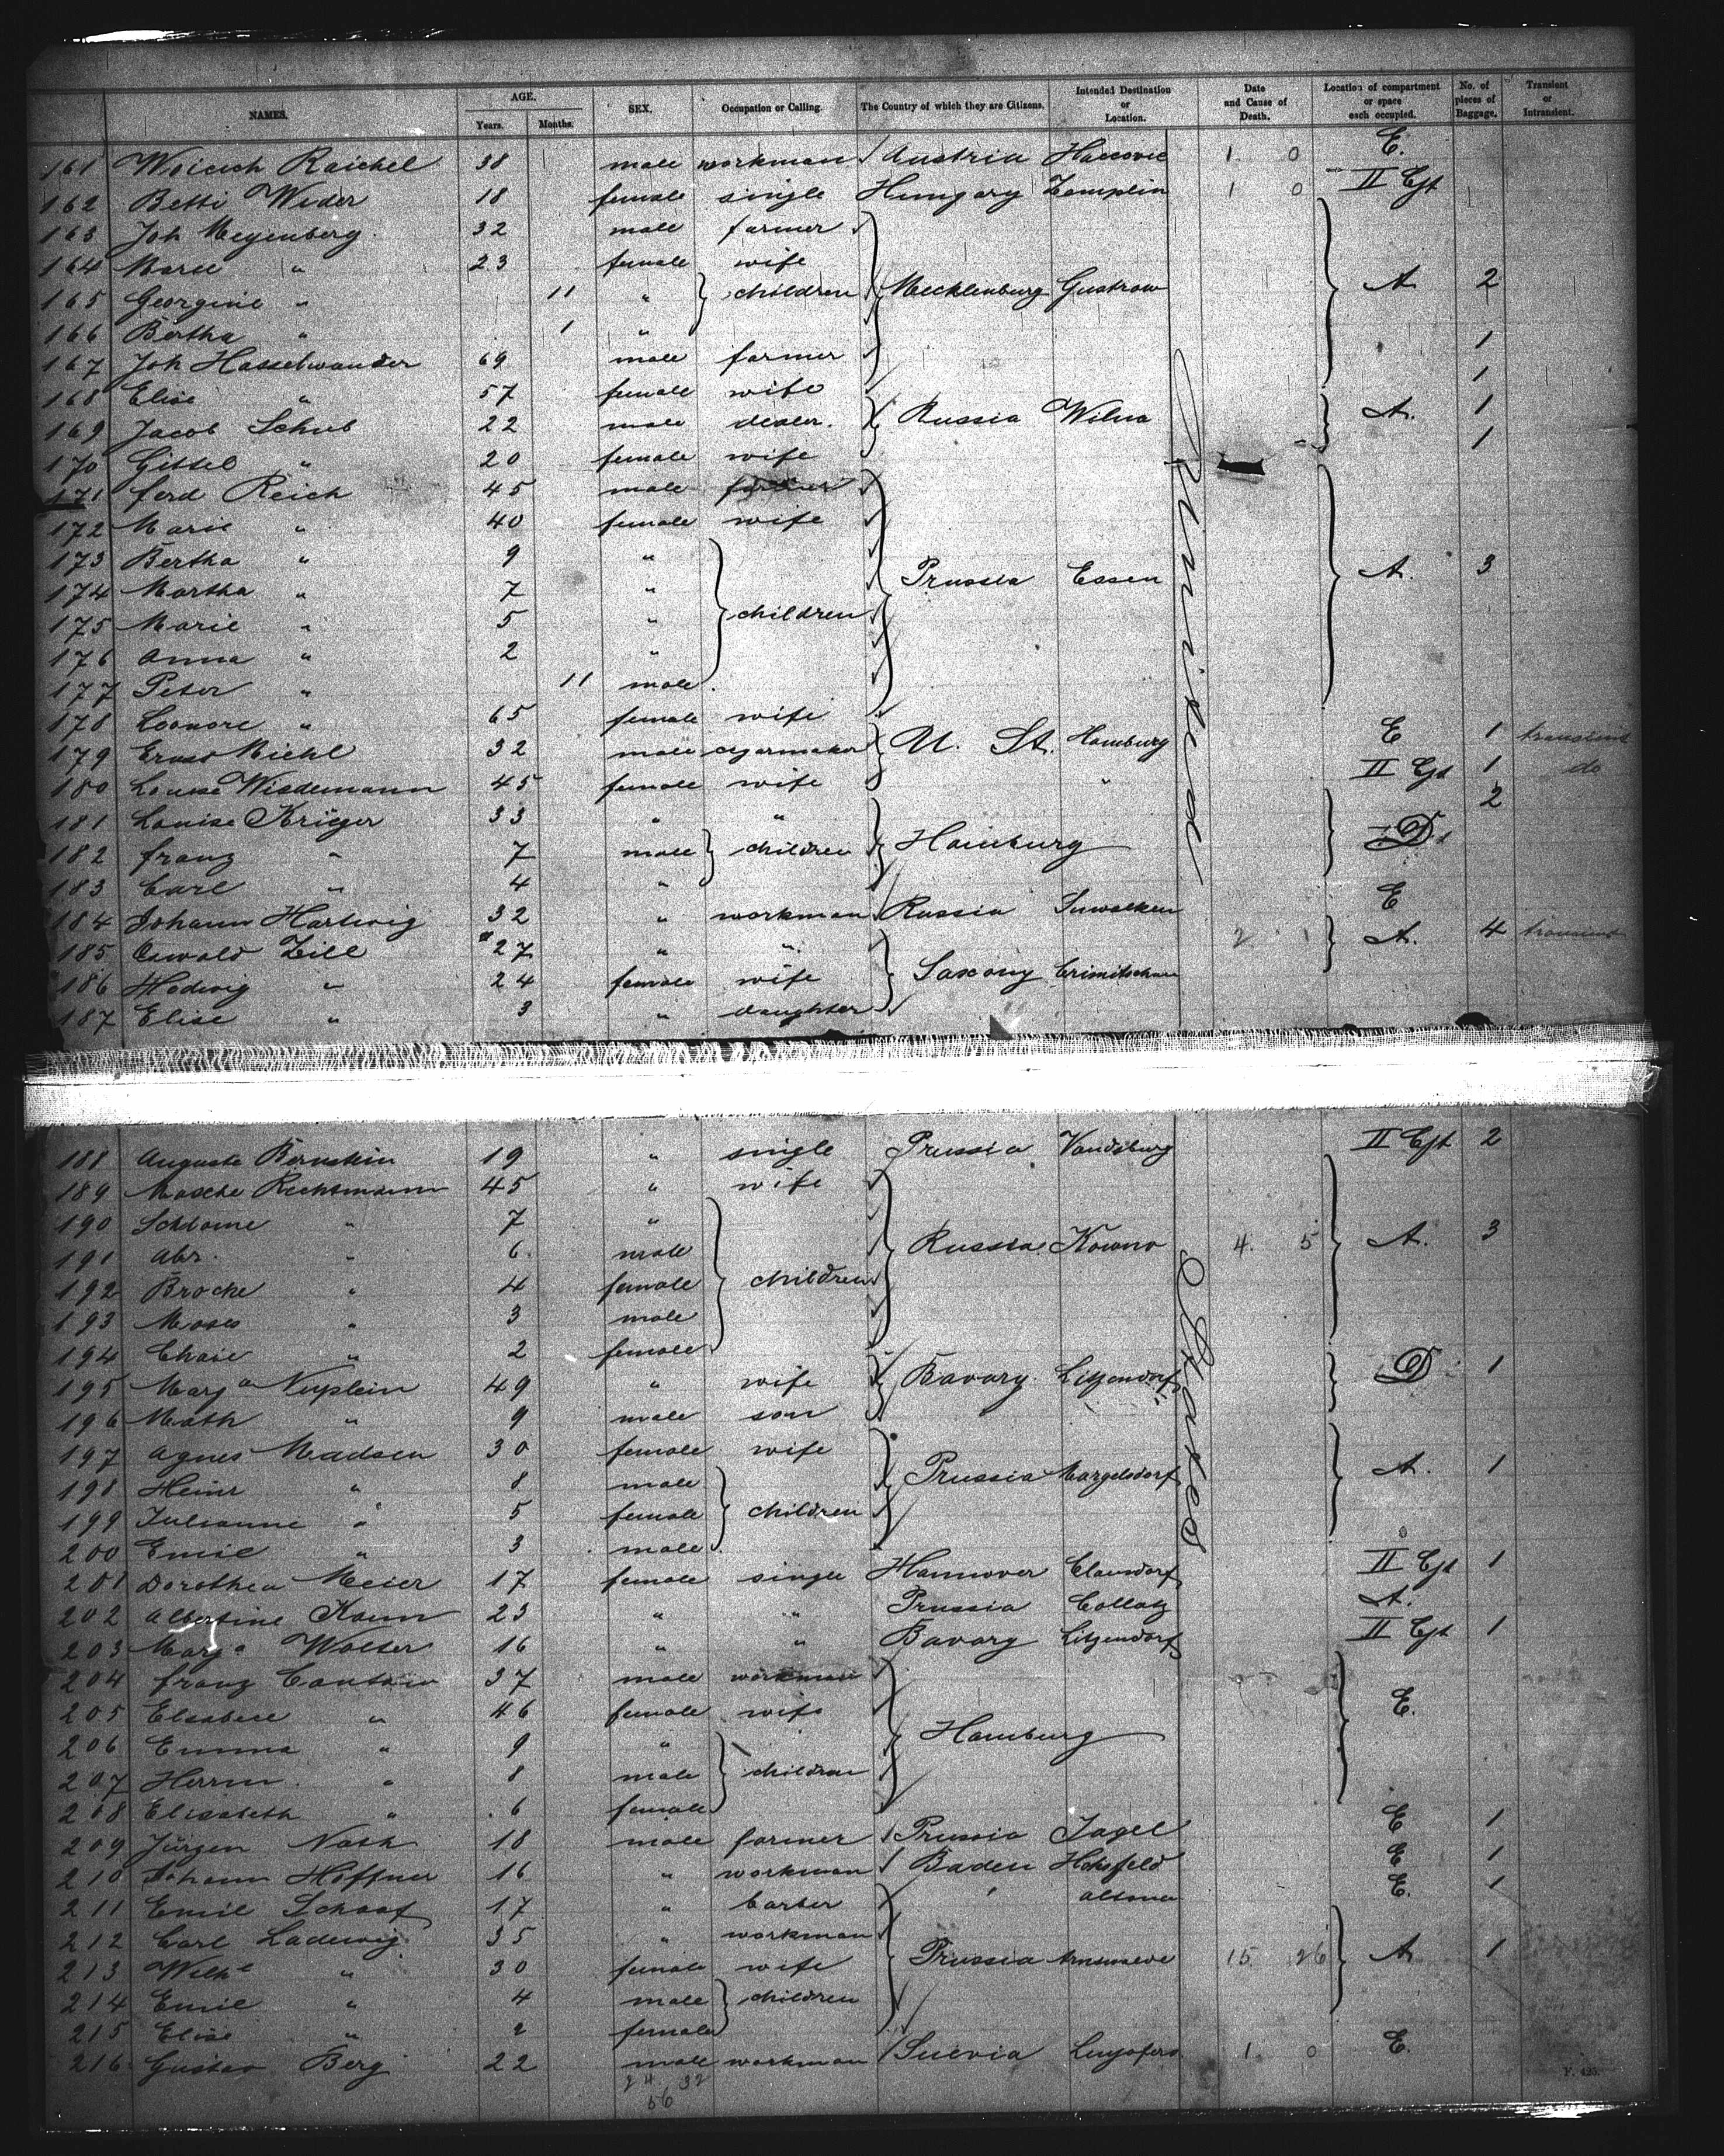 NAMES. AGE. Years. Months. SEX. Occupation or Calling. The Country of which they are Citizens. Intended Destination or Location. Date and Cause of Death. Location of compartment or space each occupied. No. of pieces of Baggage. Transient or Intransient.
161 Raichel 38 male workman Austria 1 0 E.
162 Betti Wider 18 female single Hungary Zemplin 1 0 II Cjt
163 Joh Meyenberg 32 male farmer
164 Marie " 23 female wife
165 Georgine " 11 " children Mecklenburg Gustrow A 2
166 Bertha " 1 "
167 Joh Hasselwander 69 male farmer 1
168 Elise " 57 female wife 1
169 Jacob Schub 22 male dealer. Russia Wilna A. 1
170 Gittel " 20 female wife 1
171 Ferd Reich 45 male farmer
172 Marie " 40 female wife
173 Bertha " 9 "
174 Martha " 7 " Prussia Essen A. 3
175 Marie " 5 " children
176 Anna " 2 "
177 Peter " 11 male
178 Leonore " 65 female wife
179 Ernst Michl 32 male cigarmaker U. St. Hamburg E 1 transient
180 Louise Wiedemann 45 female wife " II Cjt 1 do
181 Louise Krüger 33 " " 2
182 Franz " 7 male children Hamburg D
183 Carl " 4 "
184 Johann Hartwig 32 " workman Russia Suwalken E
185 Oswald Zill 27 " " 2 1 A. 4 transient
186 Hedwig " 24 female wife Saxony Crimitschau
187 Elise " 3 " daughter
United States
188 Auguste Bernstein 19 " single Prussia Vandsburg II Cjt 2
189 Masche Richtmann 45 " wife
190 Schlome " 7 "
191 Abr. " 6 male Russia Kowno 4. 5 A. 3
192 Brocke " 4 female children
193 Moses " 3 male
194 Chaie " 2 female
195 Marga Nüplein 49 " wife Bavary Litzendorf D 1
196 Math " 9 male son
197 Agnes Madsen 30 female wife
198 Heinr " 8 male Prussia A. 1
199 Julianne " 5 female children
200 Emil " 3 male
201 Dorothea Meier 17 female single Hannover II Cjt 1
202 Albertine Kann 23 " " Prussia Collatz A.
203 Marga Wolter 16 " " Bavary Litzendorf II Cjt 1
204 Franz 37 male workman
205 " 46 female wife E.
206 Emma " 9 " Hamburg
207 Herrm. " 8 male children
208 Elisabeth " 6 female
209 Jürgen Nath 18 male farmer Prussia Jagel E 1
210 Johann Hoffner 16 " workman Baden E 1
211 Emil Schaaf 17 " barber Altona E. 1
212 Carl Ladewig 35 " workman
213 Wilhe " 30 female wife Prussia Arnswalde 15 26 A 1
214 Emil " 4 male children
215 Elise " 2 female
216 Gustav Berg 22 male workman 1. 0 E.
24 32
56